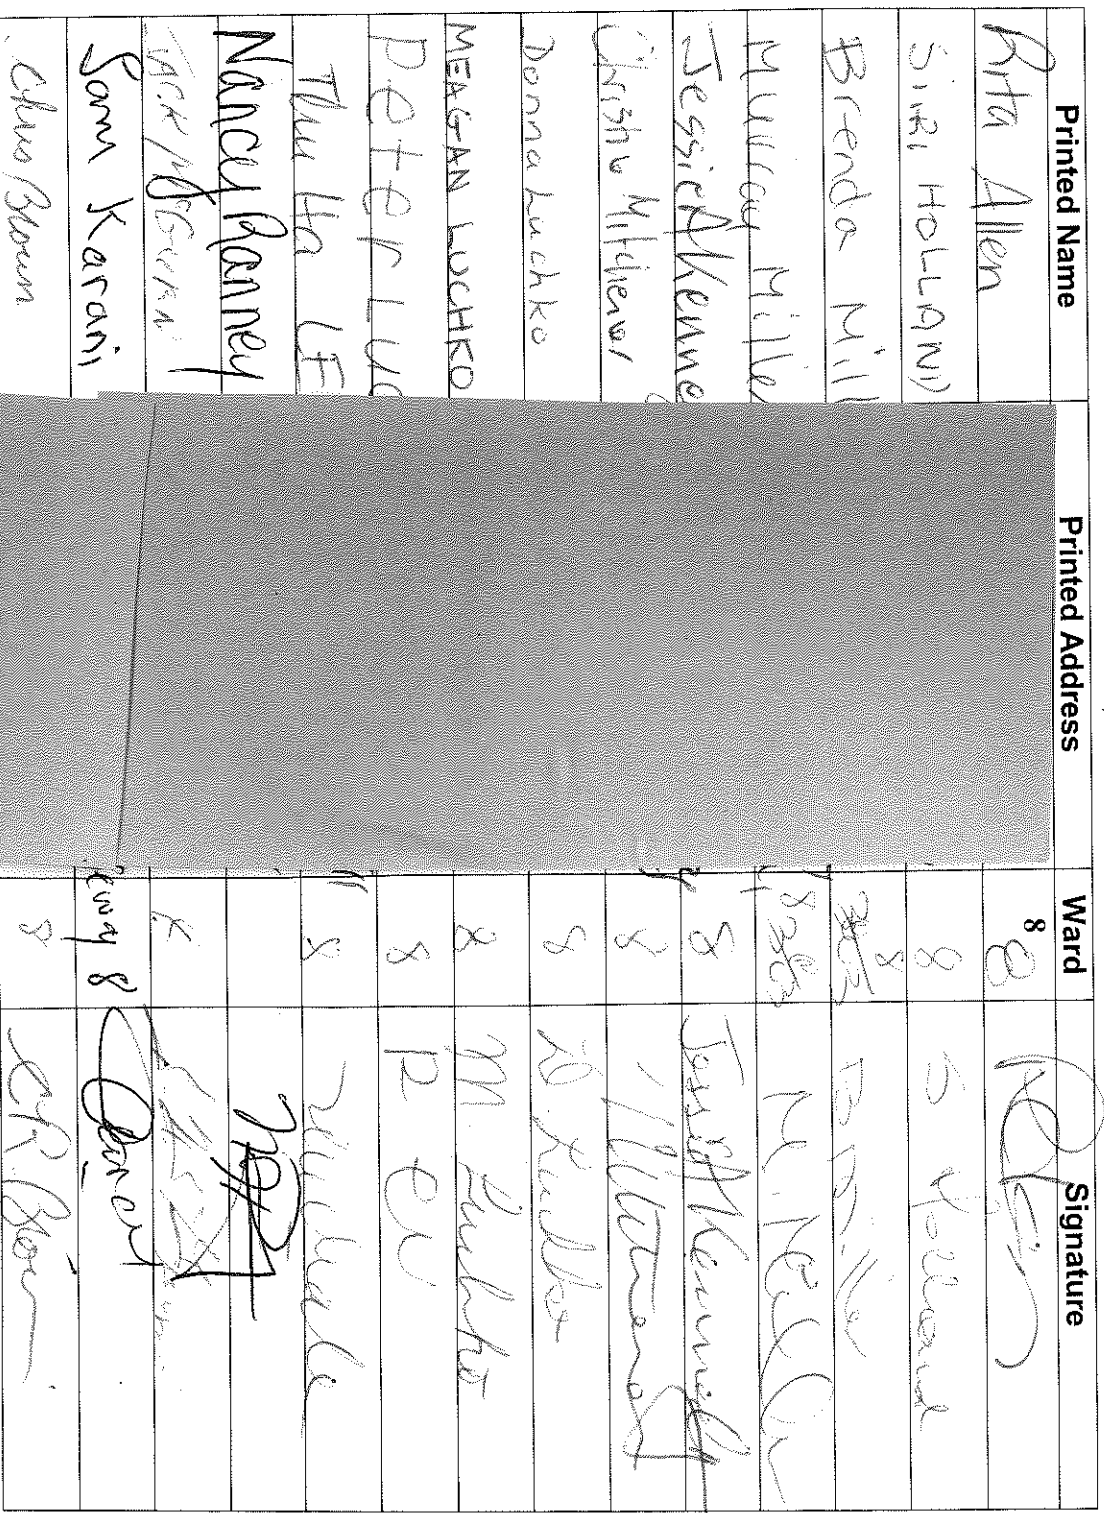 Printed Name Printed Address Ward Signature
8
Rita Allen 8
SIRI HOLLAND 8 S Holland
Brenda Mill 8 B Miller
Murray Mille 8 M Mill
Jessie A Kenne 8 Jessie A Kennedy
Christine Mitchener 8
Donna Luchko 8 D. Luchko
MEAGAN LUCHKO 8 M. Luchko
Peter Luc 8 P
Thu Ha LE 8 Thu Ha Le
Nancy Ranney
Jack
Sam Karani 8
Chris Brown 8 C R Brown